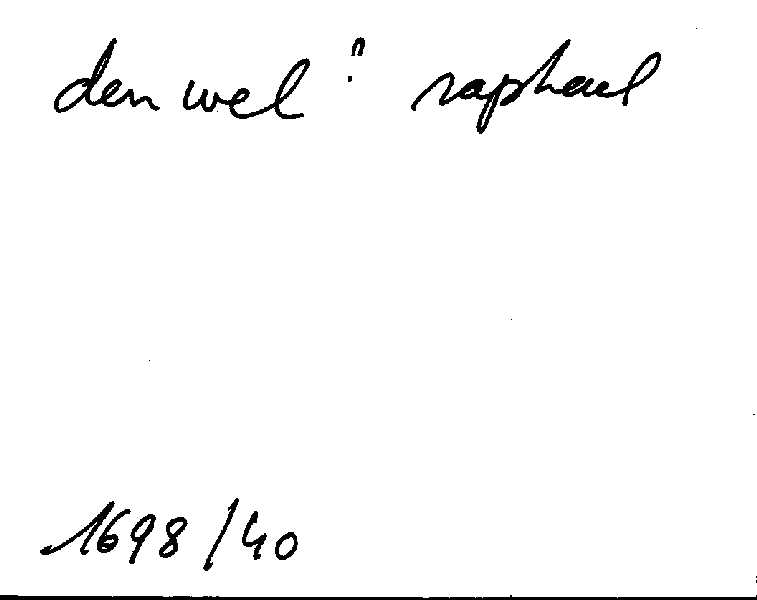 den wel ? raphael
1698/40